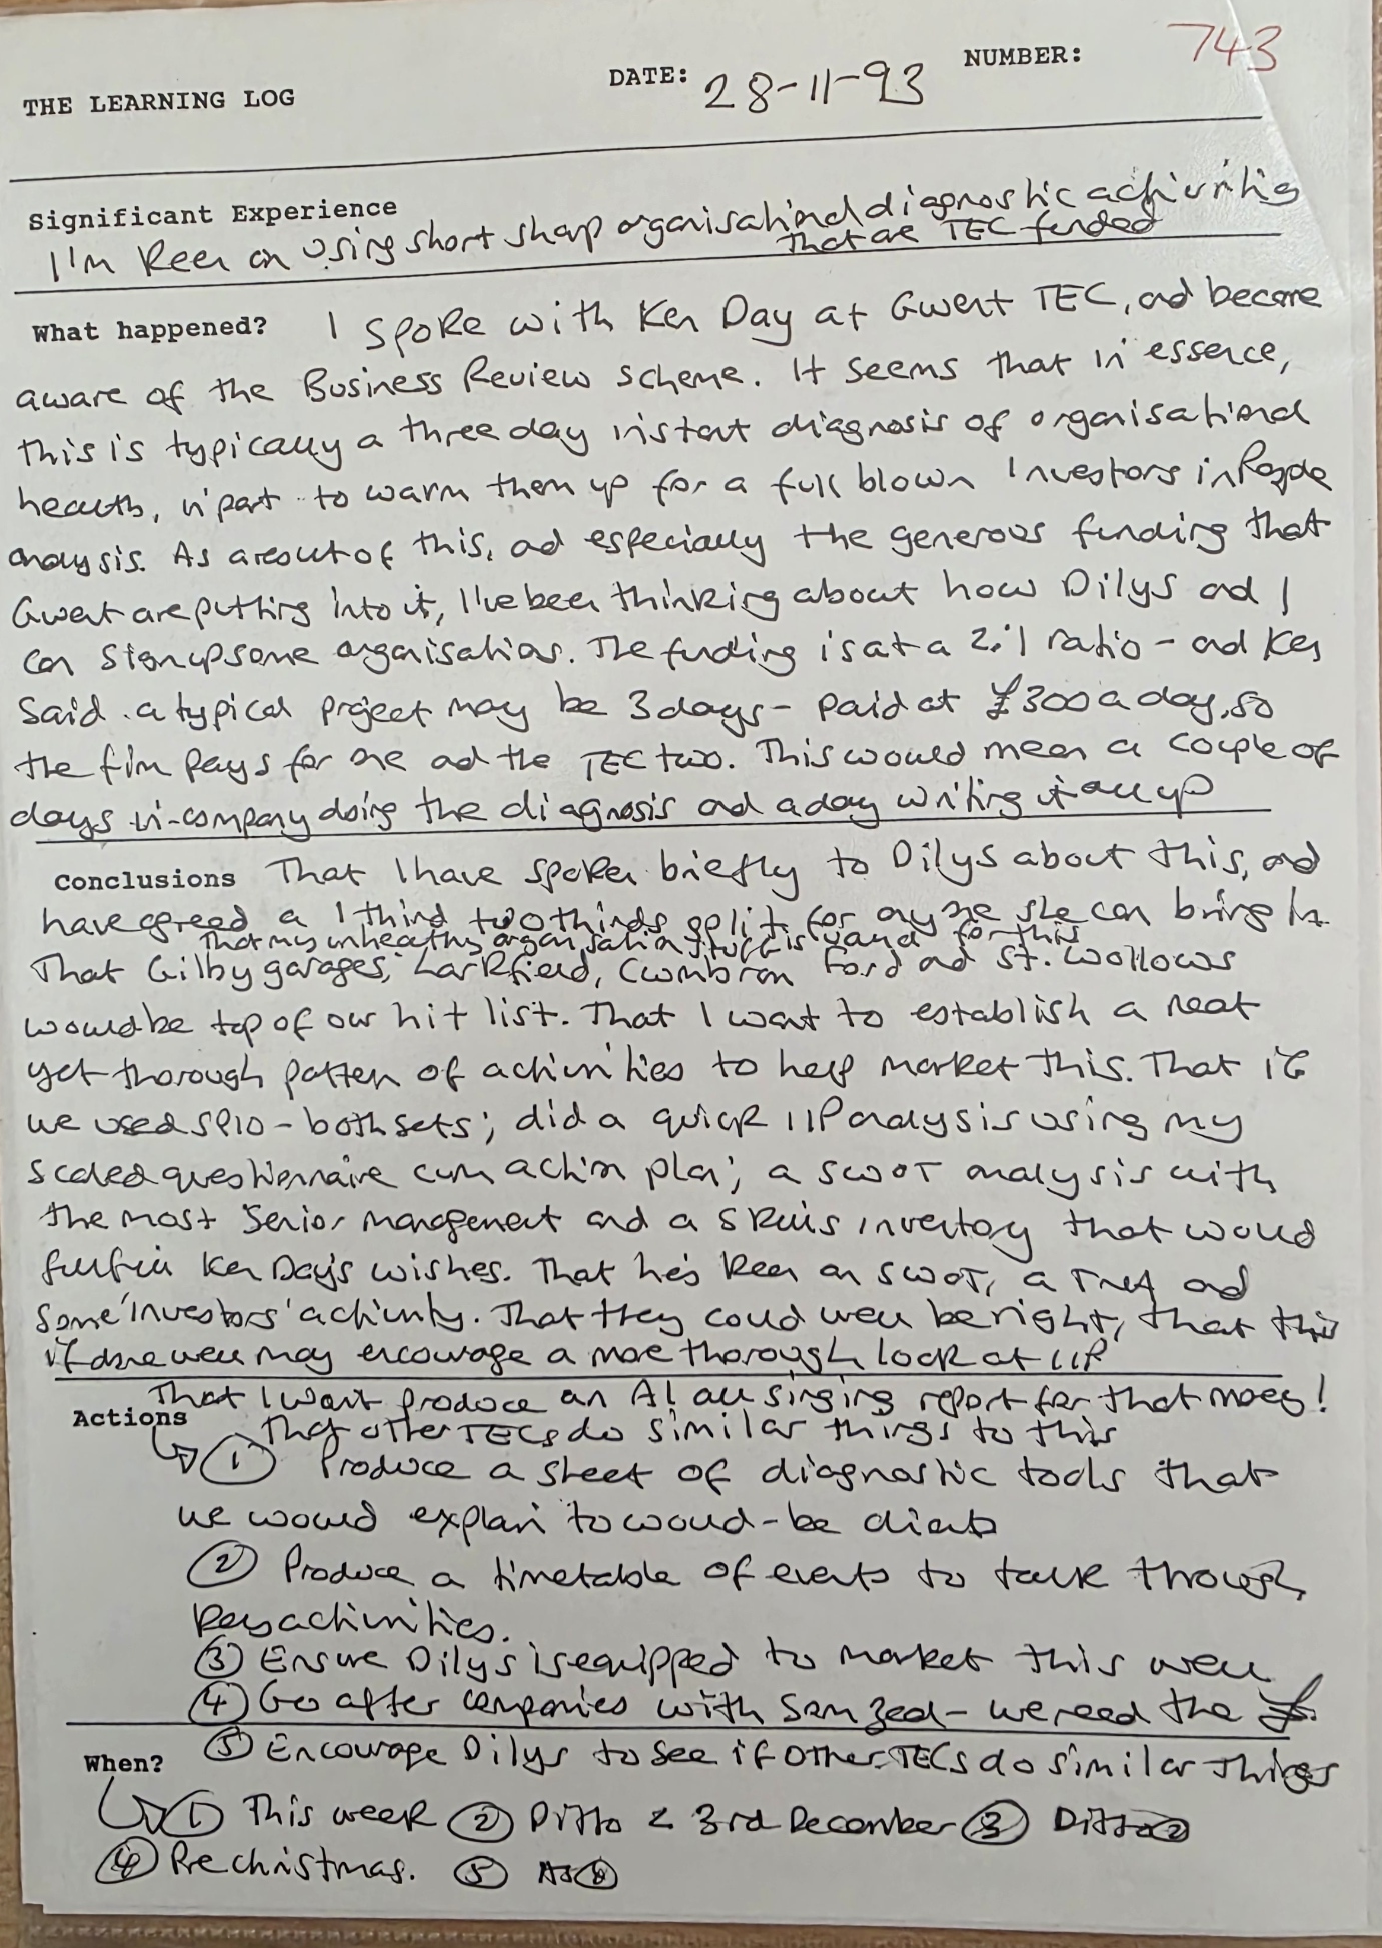 THE LEARNING LOG DATE: 28-11-93 NUMBER: 743
Significant Experience
I'm keen on using short sharp organisational diagnostic activities
that are TEC funded
What happened? I spoke with Ken Day at Gwent TEC, and became
aware of the Business Review scheme. It seems that in essence,
this is typically a three day instant diagnosis of organisational
health, in part to warm them up for a full blown Investors in People
analysis. As a result of this, and especially the generous funding that
Gwent are putting into it, I've been thinking about how Dilys and I
can sign up some organisations. The funding is at a 2:1 ratio - and Ken
said a typical project may be 3 days - paid at £300 a day, so
the firm pays for one and the TEC two. This would mean a couple of
days in-company doing the diagnosis and a day writing it all up
Conclusions That I have spoken briefly to Dilys about this, and
have agreed a 1 third two thirds split for anyone she can bring in
That my unhealthy organisation stuff is for this
That Gilby garages, Larkfield, Cwmbran Ford and St. Wollows
would be top of our hit list. That I want to establish a neat
yet thorough pattern of activities to help market this. That if
we used SP10 - both sets; did a quick IIP analysis using my
scaled questionnaire cum action plan; a SWOT analysis with
the most senior management and a skills inventory that would
fulfil Ken Day's wishes. That he's keen on SWOT, a TNA and
some 'investors' activity. That they could well be right, that this
if done well may encourage a more thorough look at IIP
That I want produce an A1 all singing report for that money!
Actions That other TECs do similar things to this
① Produce a sheet of diagnostic tools that
we would explain to would-be clients
② Produce a timetable of events to talk through
key activities.
③ Ensure Dilys is equipped to market this well
④ Go after companies with some zeal - we need the £.
⑤ Encourage Dilys to see if other TECs do similar things
When?
① This week ② Ditto < 3rd December ③ Ditto ②
④ Pre christmas. ⑤ As ④